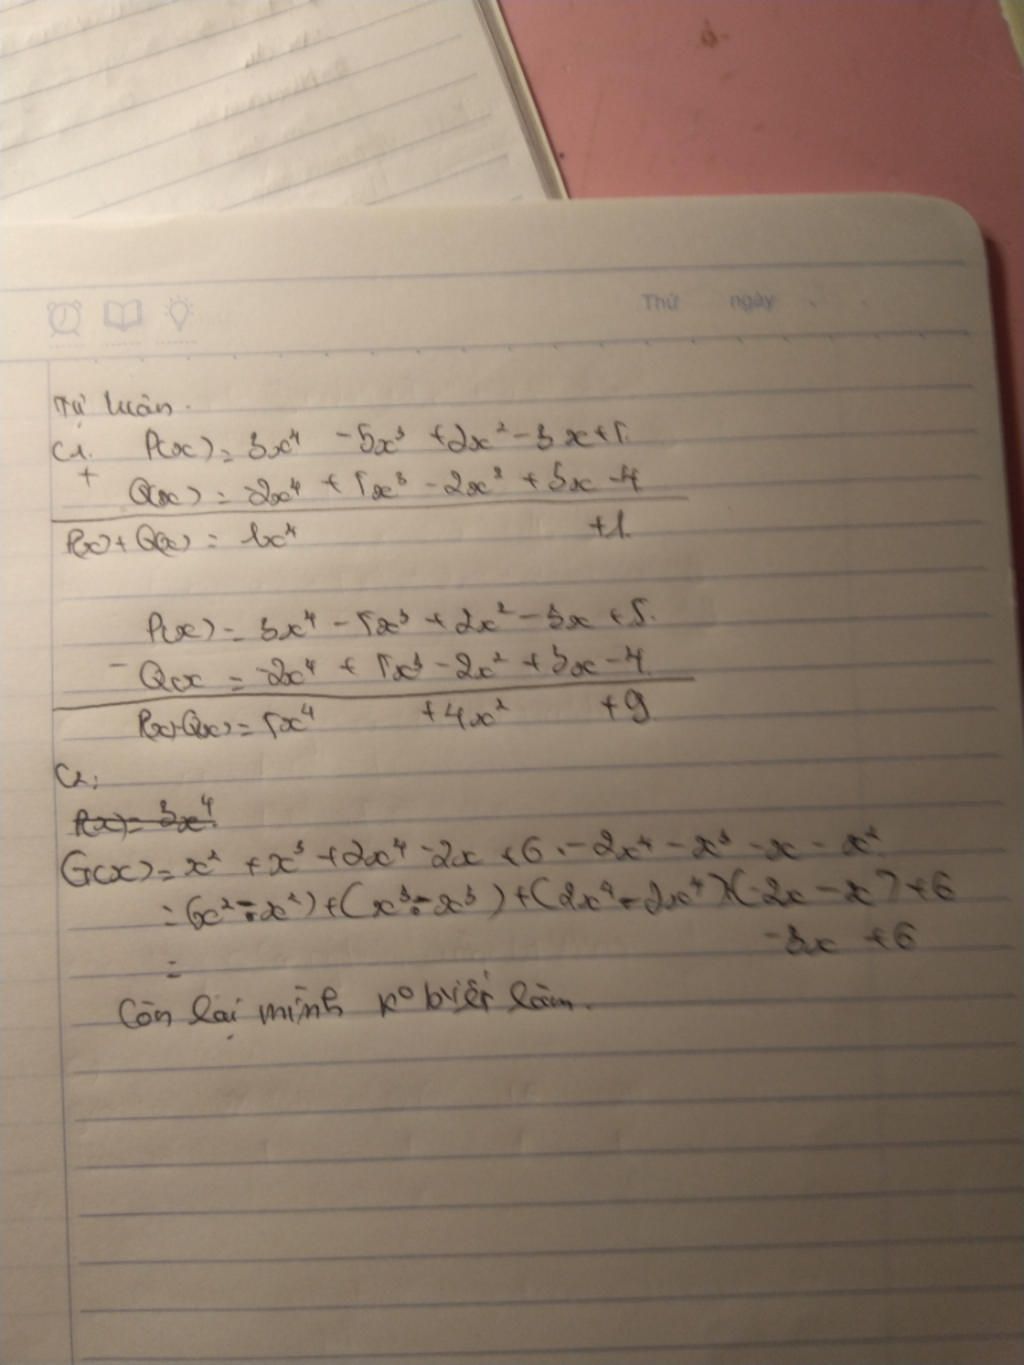 Thứ ngày
Tự luận.
C1. P(x) = 3x⁴ - 5x³ + 2x² - 3x + 5.
+ Q(x) = -2x⁴ + 5x³ - 2x² + 3x - 4
P(x) + Q(x) = 1x⁴ + 1.
P(x) = 3x⁴ - 5x³ + 2x² - 3x + 5.
- Q(x = -2x⁴ + 5x³ - 2x² + 3x - 4
P(x) - Q(x) = 5x⁴ + 4x² + 9.
C2:
P(x) = 3x⁴
G(x) = x² + x³ + 2x⁴ - 2x + 6 - 2x⁴ - x³ - x - x²
= (x² - x²) + (x³ - x³) + (2x⁴ - 2x⁴) (-2x - x) + 6
= -3x + 6
Còn lại mình ko biết làm.